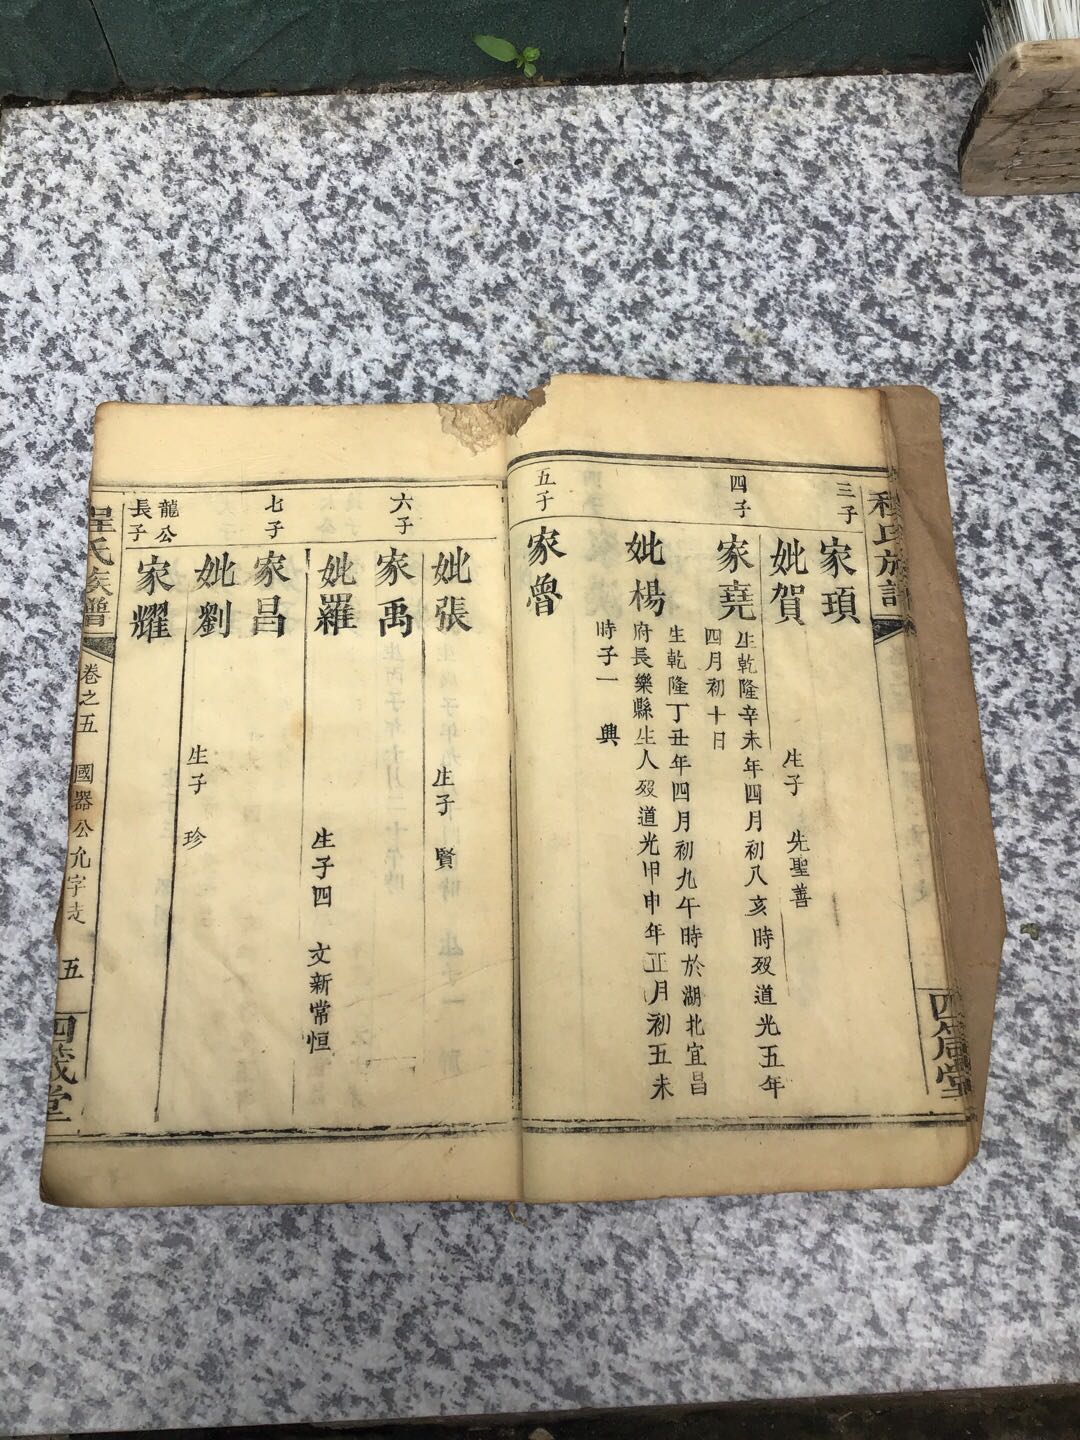 三子
家頊
妣賀
生子 先聖善
四子
家堯
生乾隆辛未年四月初八亥時歿道光五年
四月初十日
妣楊
生乾隆丁丑年四月初九午時於湖北宜昌
府長樂縣生人歿道光甲申年正月初五未
時子一 興
五子
家魯
妣張
生子 賢
六子
家禹
妣羅
生子四 文新常恒
七子
家昌
妣劉
生子 珍
龍公
長子
家耀
程氏族譜
卷之五 國器公允字走 五
四箴堂